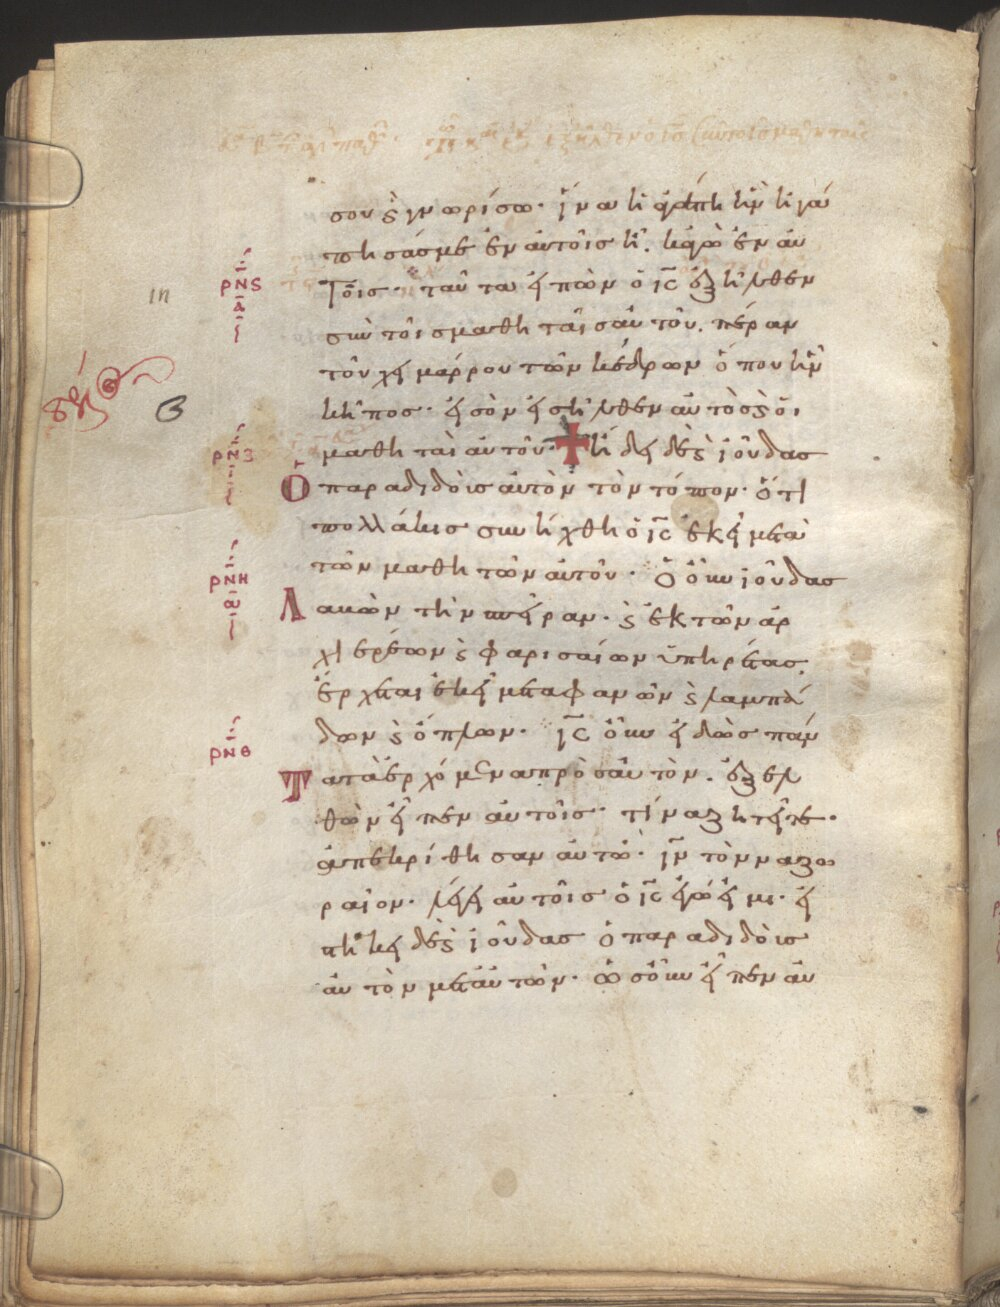 σου ϗ γνωρίσω· ἵνα ἡ ἀγάπη ἣν ἠγά
πησάσμε ἐν αὐτοῖς ἦ. κἀγὼ ἐν αὐ
τοῖς· ταῦτα εἰπὼν ὁ ις ἐξῆλθεν
ρνς
α
ιη
σὺν τοῖσ μαθηταῖσ αὐτοῦ. πέραν
τοῦ χειμάρρου τῶν κέδρων ὅπου ἦν
κῆποσ· εἰσ ὸν εἰσῆλθεν αὐτὸσ ϗ οἱ
μαθηταὶ αὐτοῦ· ἤδει δὲ ϗ ἰούδασ
ρνζ
ὁ παραδιδοὶσ αὐτὸν τὸν τόπον· ὅτι
πολλάκισ συνήχθη ὁ ις ἐκεῖ μετὰ
τῶν μαθητῶν αὐτοῦ· Ὁ οὖν ἰούδασ
ρνη
α
Λαβὼν τὴν σπείραν· ϗ ἐκ τῶν ἀρ
χιερέων ϗ φαρισαίων ὑπηρέτασ.
ἔρχεται ἐκεῖ μετα φανῶν ϗ λαμπά
δων ϗ ὅπλων· ις οὖν εἰδὼσ πάν
ρνθ
τα τὰ ἐρχόμενα πρὸσ αὐτὸν. ἐξελ
θὼν εἶπεν αὐτοῖσ· τίνα ζητεῖτε·
ἀπεκρίθησαν αὐτῶ· ιν τὸν ναζω
ραῖον· λέγει αὐτοῖσ ὁ ις ἐγώ εἰμι· εἱ
στήκει δὲ ϗ ἰούδασ ὁ παραδιδοὶσ
αὐτὸν μετ αὐτῶν· ὡσ οὖν εἶπεν αὐ